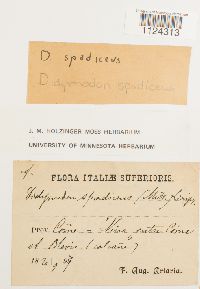 1124313
D. spadiceus
Didymodon spadiceus
J. M. HOLZINGER MOSS HERBARIUM
UNIVERSITY OF MINNESOTA HERBARIUM
FLORA ITALIÆ SUPERIORIS.
Didymodon spadiceus (Mitt.) Limpr.
Prov. Como =
et Blevio
F. Aug. Artaria.